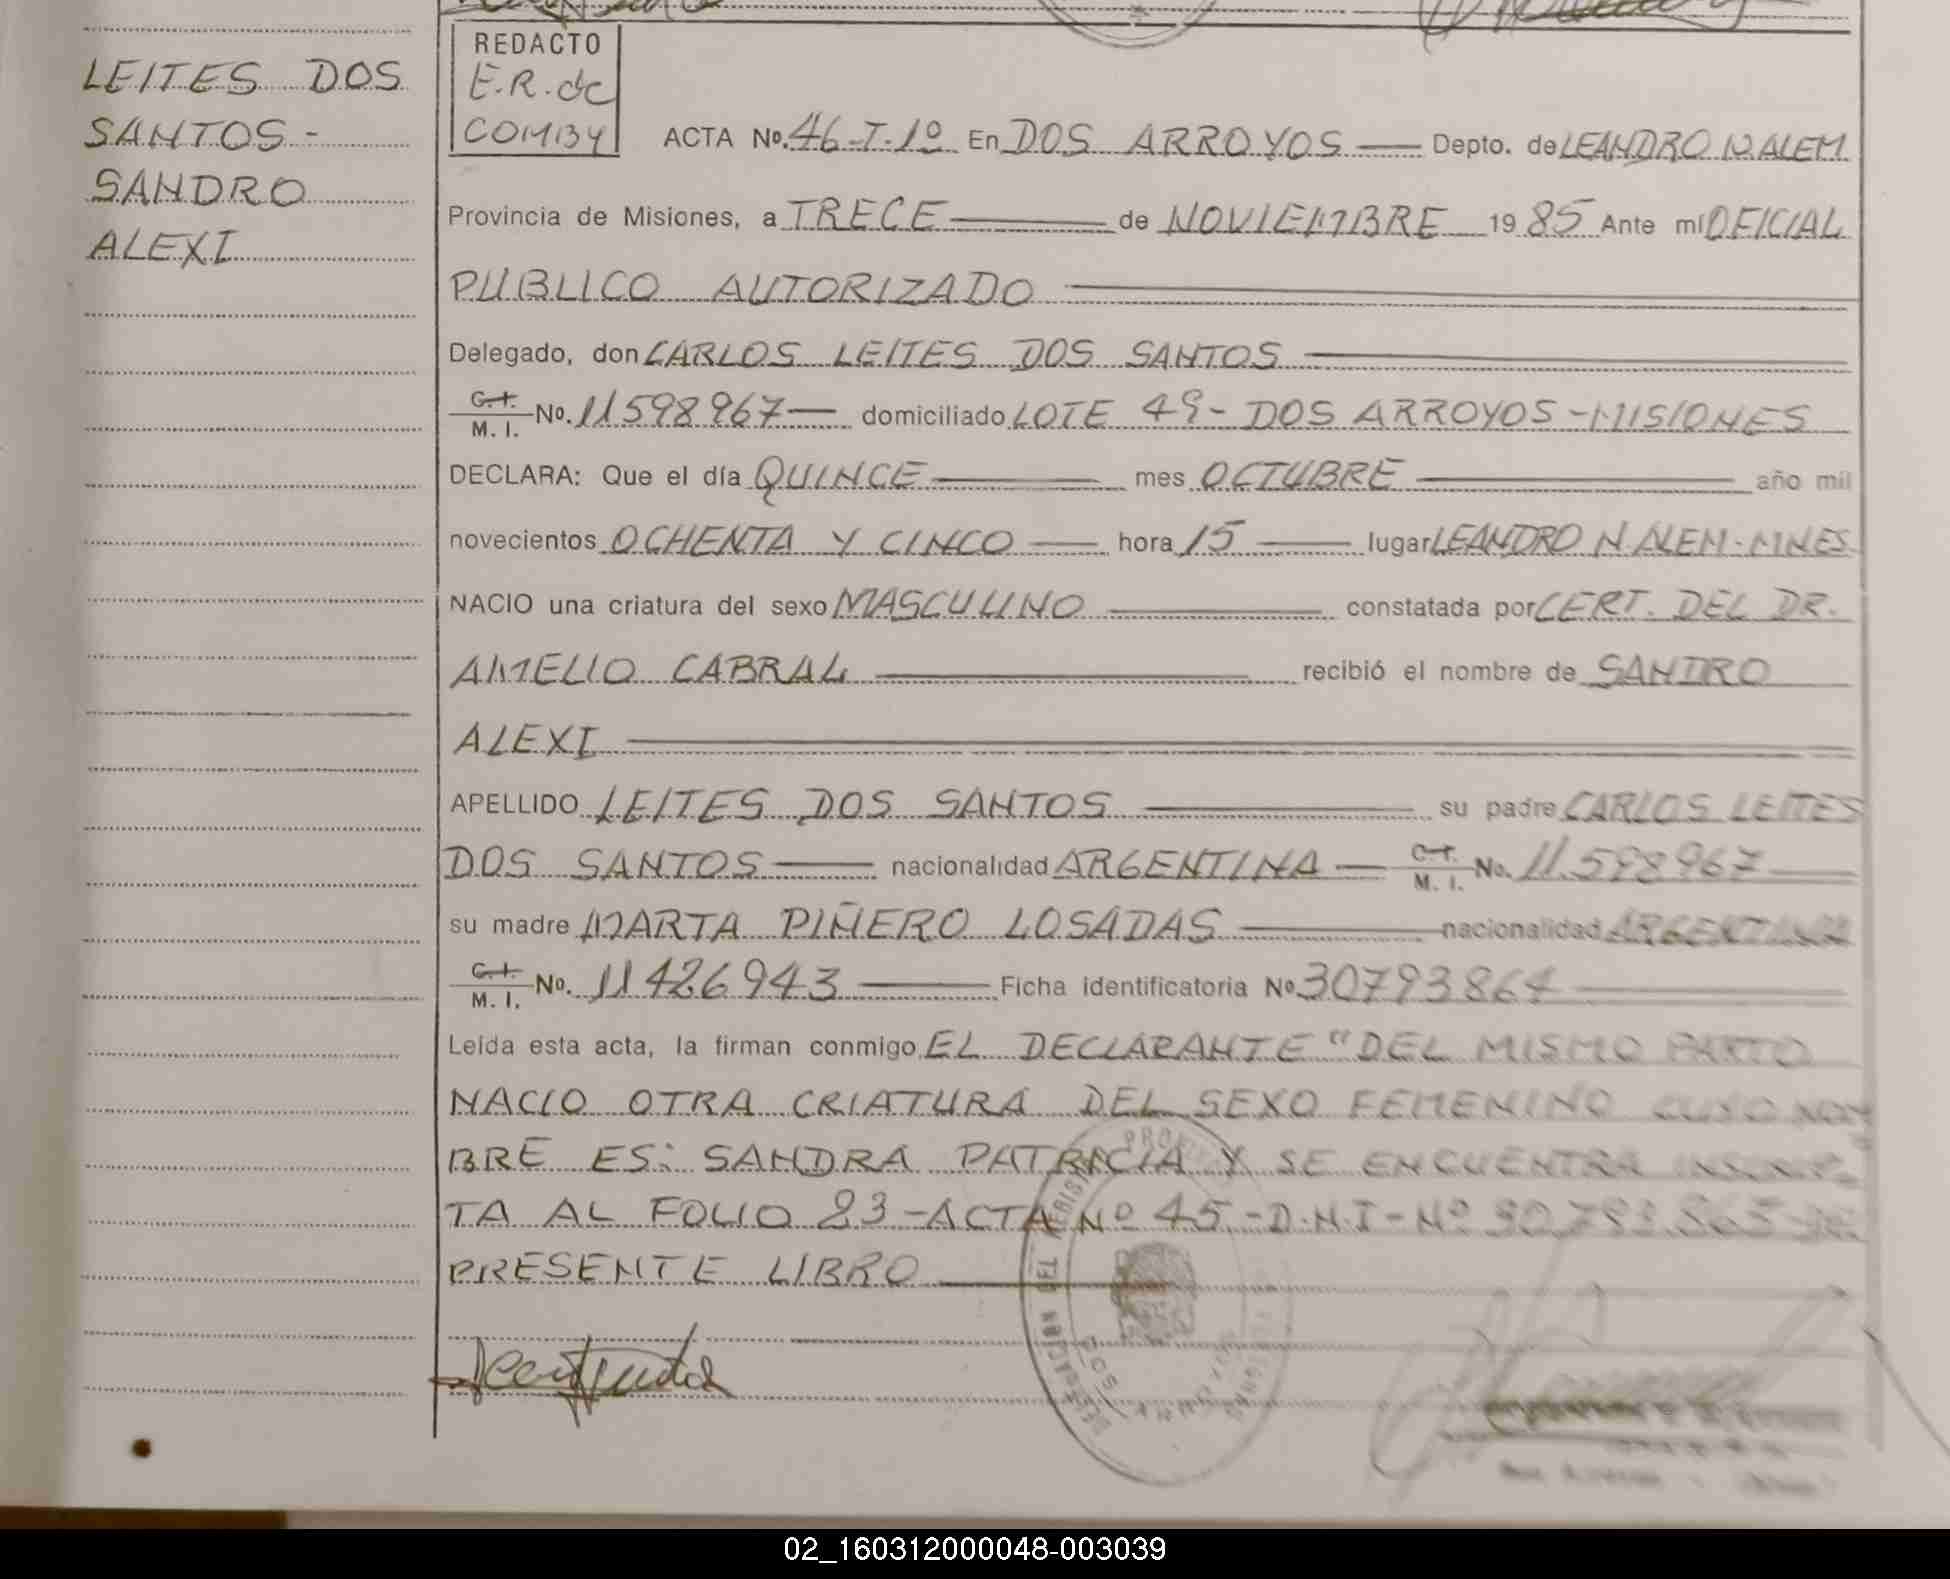 LEITES DOS
SANTOS-
SANDRO
ALEXI
REDACTO
E.R. de
COMBY
ACTA Nº. 46-T-1º En DOS ARROYOS — Depto. de LEANDRO N. ALEM
Provincia de Misiones, a TRECE — de NOVIEMBRE 1985 Ante mí OFICIAL
PUBLICO AUTORIZADO —
Delegado, don CARLOS LEITES DOS SANTOS —
C.I. / M. I. Nº. 11598967 — domiciliado LOTE 49 - DOS ARROYOS - MISIONES
DECLARA: Que el día QUINCE — mes OCTUBRE — año mil
novecientos OCHENTA Y CINCO — hora 15 — lugar LEANDRO N. ALEM - MNES.
NACIO una criatura del sexo MASCULINO — constatada por CERT. DEL DR.
AMELIO CABRAL — recibió el nombre de SANDRO
ALEXI —
APELLIDO LEITES DOS SANTOS — su padre CARLOS LEITES
DOS SANTOS — nacionalidad ARGENTINA — C.I. / M. I. No. 11.598967 —
su madre MARTA PIÑERO LOSADAS — nacionalidad ARGENTINA
C.I. / M. I. Nº. 11426943 — Ficha identificatoria Nº 30793864 —
Leída esta acta, la firman conmigo EL DECLARANTE "DEL MISMO PARTO
NACIO OTRA CRIATURA DEL SEXO FEMENINO CUYO NOM
BRE ES: SANDRA PATRICIA Y SE ENCUENTRA INSCRIP-
TA AL FOLIO 23 - ACTA Nº 45 - D.N.I - Nº 30.793.865
PRESENTE LIBRO —
02_160312000048-003039